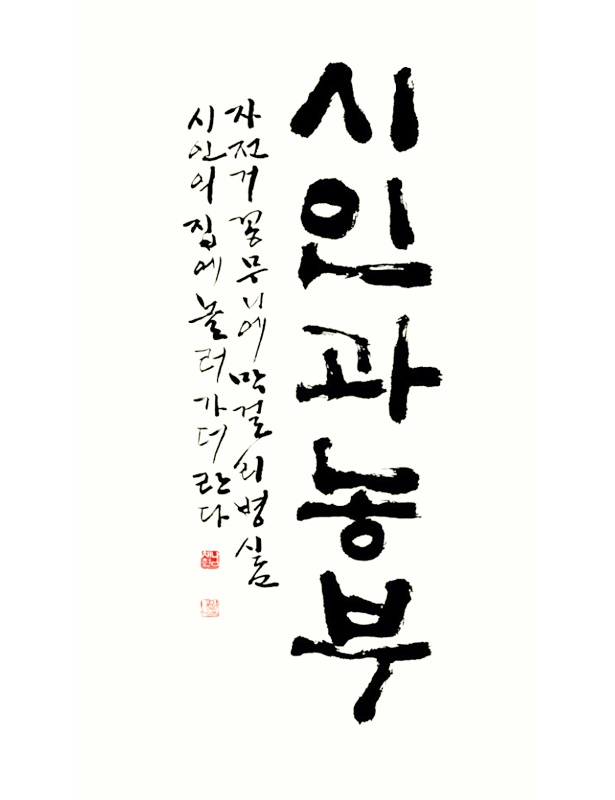 시인과농부
자전거꽁무니에막걸리병
시인의집에놀러가더란다